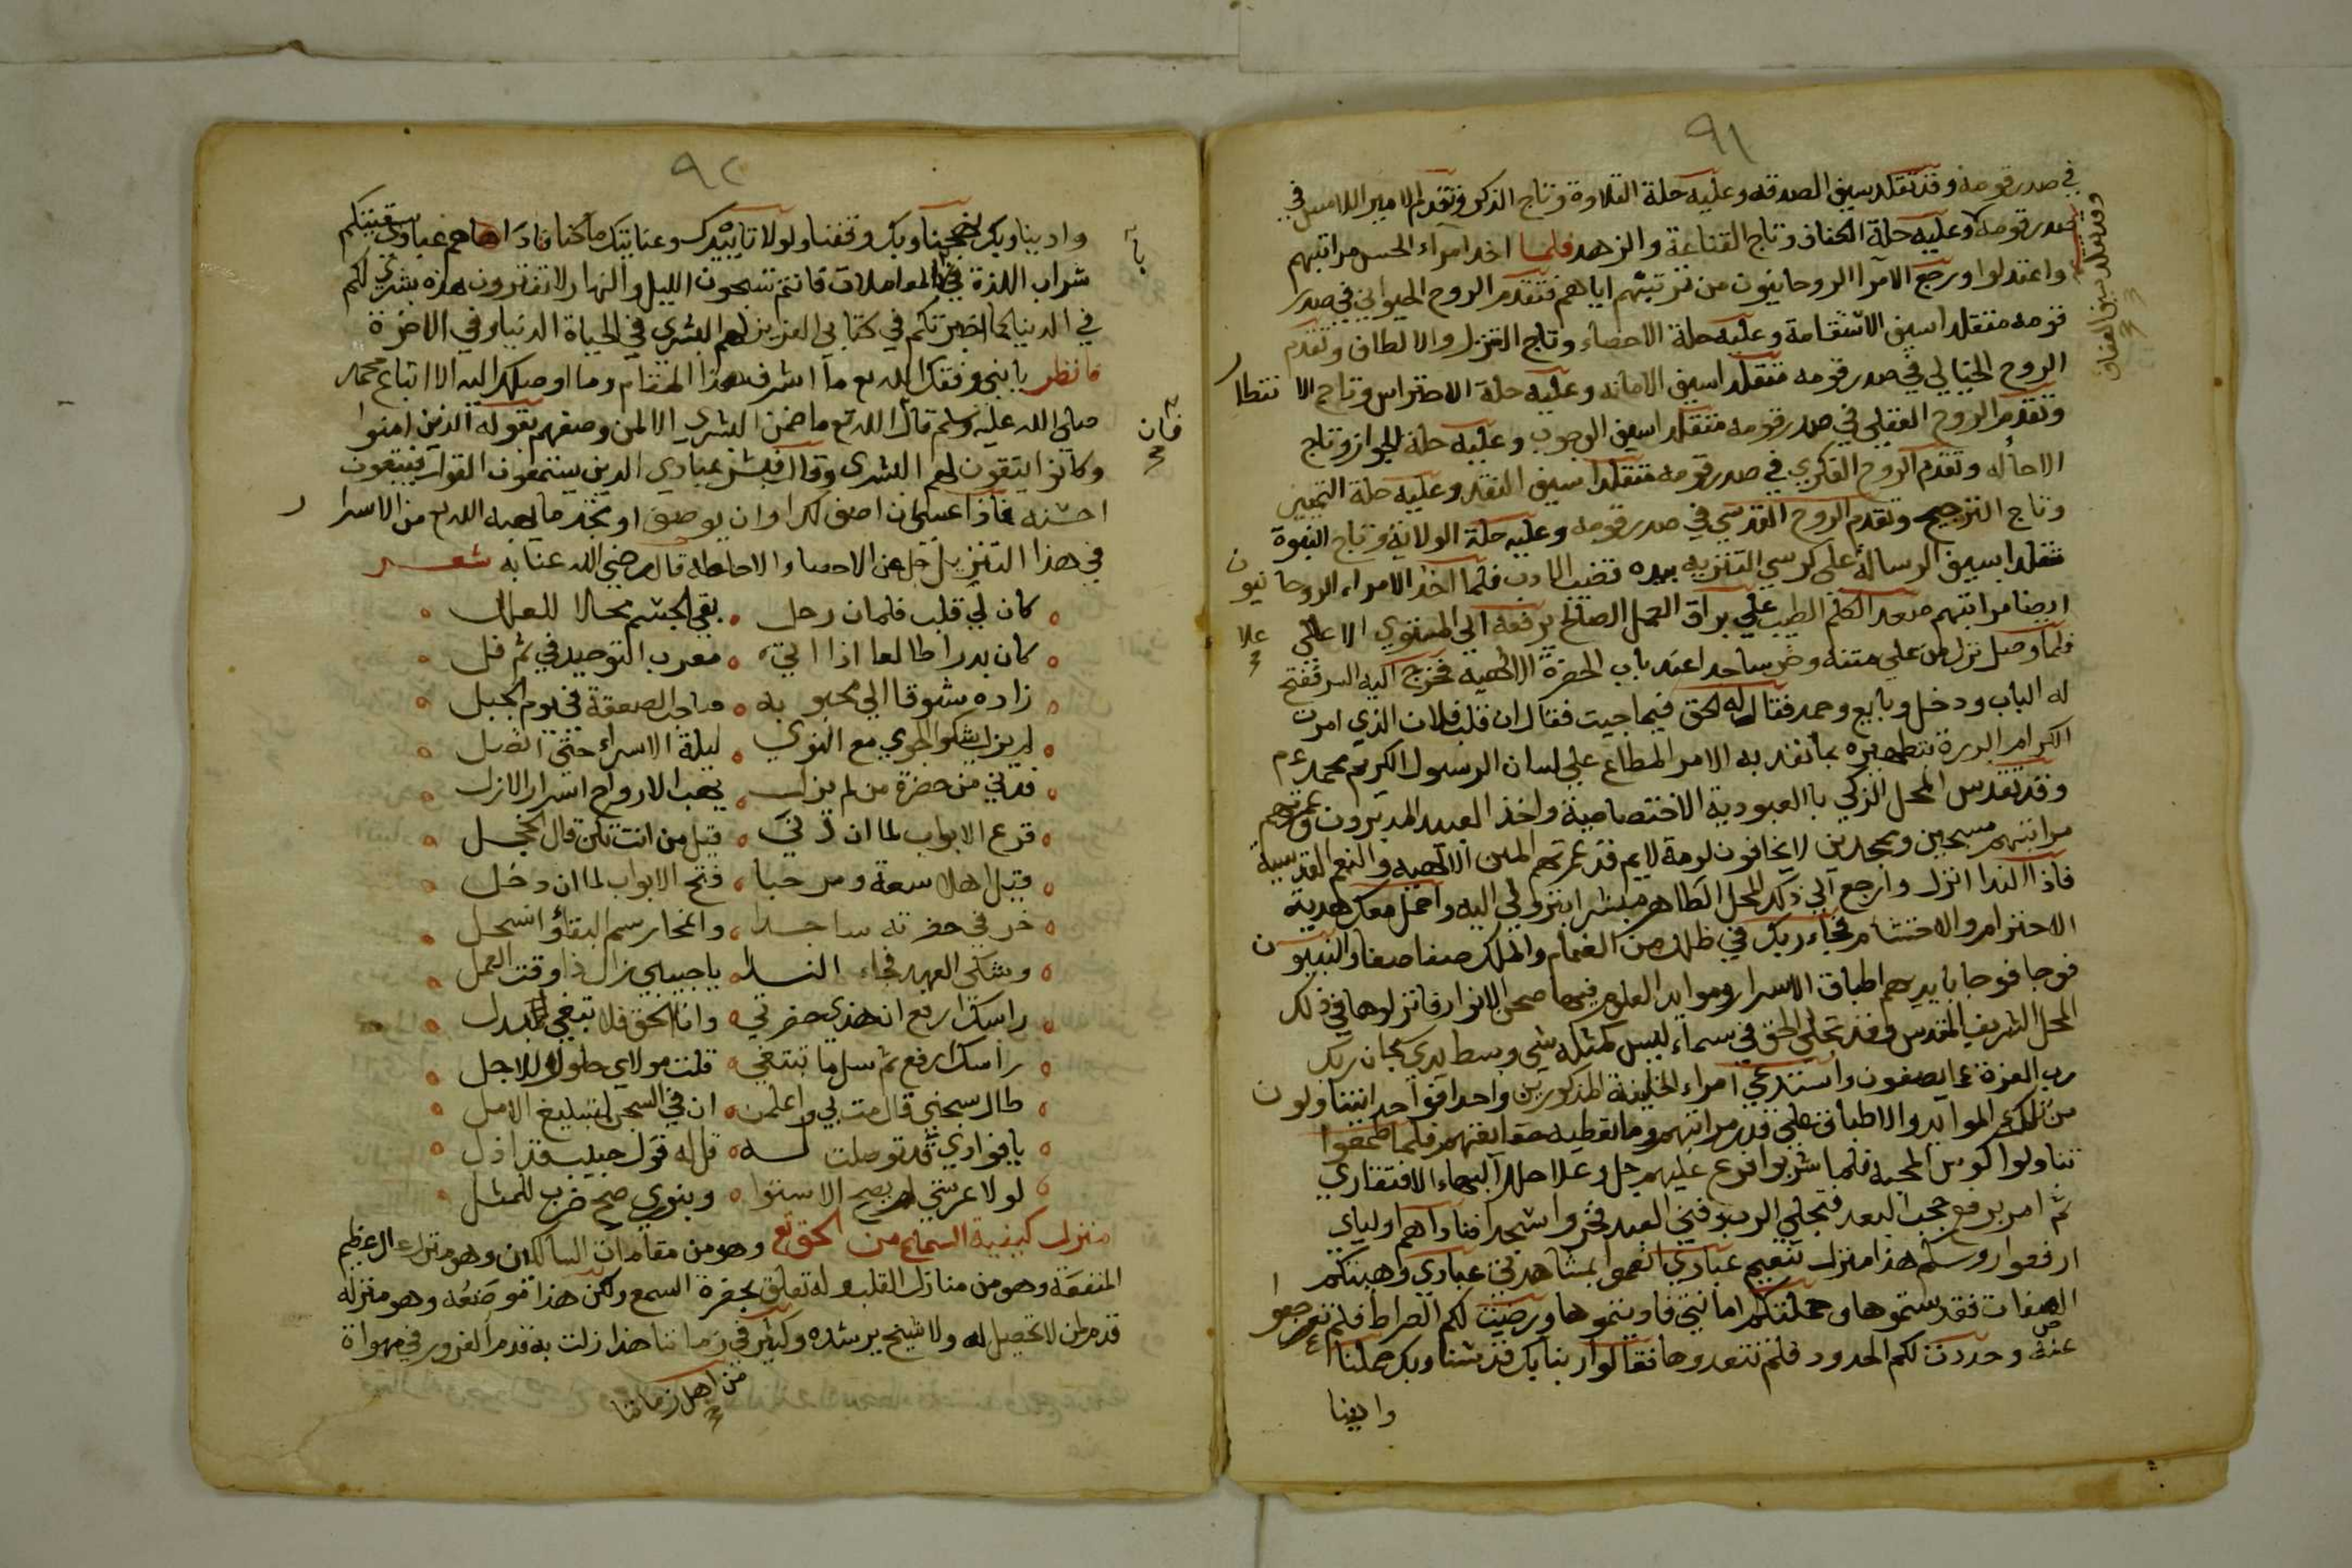 ٩١
في صدر قومه وقد تقلد سيف الصدقه وعليه حلة التلاوة وتاج الذكر وتقدم الامير اللامس في
صدر قومه وعليه حلة الكفاف وتاج القناعة والزهد فلما اخذ امراء الحس مراتبهم
وقد تقلد سيف العفاف
واعتدلوا ورجع الامرآ الروحانيون من ترتيبهم اياهم فتقدم الروح الحيواني في صدر
قومه متقلدا سيف الاستقامة وعليه حلة الاحصاء وتاج التنزل والالطاف وتقدم
الروح الخيالي في صدر قومه متقلدا سيف الامانه وعليه حلة الاحتراس وتاج الانتظار
وتقدم الروح العقلي في صدر قومه متقلدا سيف الوجوب وعليه حلة الجواز وتاج
الاحاله وتقدم الروح الفكري في صدر قومه متقلدا سيف النقد وعليه حلة التمييز
وتاج الترجيح وتقدم الروح القدسي في صدر قومه وعليه حلة الولاية وتاج النبوة
متقلدا سيف الرسالة على كرسي التنزيه بيده قضيب الادب فلما اخذ الامراء الروحانيون
ايضا مراتبهم صعد الكلم الطيب علي براق العمل الصالح يرفعه الي المستوي الاعلي علا
فلما وصل نزل من علي متنه وخر ساجدا عند باب الحضرة الالهية فخرج اليه السر ففتح
له الباب ودخل وبايع وحمد فقال له الحق فيما جيت فقال ان قلب فلان الذي امرت
الكرام البررة بتطهيره بما نفذ به الامر المطاع علي لسان الرسول الكريم محمد عم
وقد تقدس المحل الزكي بالعبودية الاختصاصية واخذ العبيد المدبرون
مراتبهم مسبحين وممجدين لا يخافون لومة لايم قد غمرتهم المنن الالهيه والنعم القدسية
فاذا الندا انزل وارجع الي ذلك المحل الطاهر مبشرا بنزولي اليه واحمل معك هدية
الاحترام والاحتشام فجاء ربك في ظلل من الغمام والملك صفا صفا والنبيون
فوجا فوجا بايديهم اطباق الاسرار وموايد العلوم فيها صحن الانوار فانزلوها في ذلك
المحل الشريف المقدس وقد تجلي الحق في سماء ليس كمثله شي وبسط يدي سبحان ربك
رب العزة عما يصفون واستدعي امراء الخليفة المذكورين واحدا فواحدا يتناولون
من تلك الموايد والاطباق علي قدر مراتبهم وما تعطيه حقايقهم فلما طعموا
تناولوا كوس المحبه فلما شربوا فرغ عليهم جل وعلا حلل البهاء الافتقاري
ثم امر برفع حجب البعد فتجلي الرب وفني العبد فخروا سجدا فناداهم اولياي
ارفعوا روسكم هذا منزل تنعيم عبادي انعموا بمشاهدتي عبادي وهبتكم
الصفات فقدستموها وحملتكم امانتي فاديتموها ورضيت لكم الصراط فلم تعرجوا
عنه وحددت لكم الحدود فلم تتعدوها فقالوا ربنا بك قدسنا وبك حملنا
وادينا
٩٢
وادينا وبك وبك وقفنا ولولا تاييدك وعنايتك ما كنا فناداهم عبادي سقيتكم
شراب اللذة في المعاملات فانتم تسبحون الليل والنهار لا تفترون هذه بشري لكم
في الدنيا كما اخبرتكم في كتابي العزيز لهم البشري في الحياة الدنيا وفي الاخرة
فانظر يا بني وفقك الله تع ما اشرف هذا المقام وما اوصلك اليه الا اتباع محمد
صلي الله عليه وسلم قال الله تع ما ضمن البشري الا لمن وصفهم بقوله الذين امنوا
فان
وكانوا يتقون لهم البشري وقال فبشر عبادي الذين يستمعون القول فيتبعون
احسنه فاذا عسي ان اصف لك او ان يوصف او يحد ما يهبه الله تع من الاسرار
في هذا التنزيل جل عن الاحصا والاحاطه قال رضي الله عنا به شعر
كان لي قلب فلما ان رحل بقي الجسم محلا للعلل
كان بدرا طالعا اذ اتي مغرب التوحيد في ثم افل
زاده شوقا الي محبوبه صاحب الصعقة في يوم الجبل
لم يزل يشكو الجوي مع النوي ليلة الاسراء حتي اتصل
فدني من حضرة من لم يزل يهب الارواح اسرار الازل
قرع الابواب لما ان دني قيل من انت فقال الخجل
قيل اهلا سعة ومرحبا فتح الابواب لما ان دخل
خر في حضرته ساجدا وانمحا رسم البقا وانسجل
وشكي العهد فجاء الندا يا حبيبي زال ذا وقت العمل
راسك ارفع ان هذي حضرتي وانا الحق فلا تبغي البدل
راسك ارفع ثم سل ما تبتغي قلت مولاي حلول الاجل
طال سجني قال مت بي واعلمن ان في السجن لتبليغ الامل
يا فوادي قد توصلت له قل له قول حبيب قد ادل
لولا عرشي لم يصح الاستوا وبنوري صح ضرب للمثل
منزل كيفية السماع من الحق تع وهو من مقامات السالكين وهو منزل عظيم
المنفعة وهو من منازل القلب وله تعلق بحضرة السمع ولكن هذا موضعه وهو منزله
قدم لمن لا تحصيل له ولا شيخ يرشده وكثير في زماننا هذا زلت به قدم الغرور في مهواة
من اهل زماننا